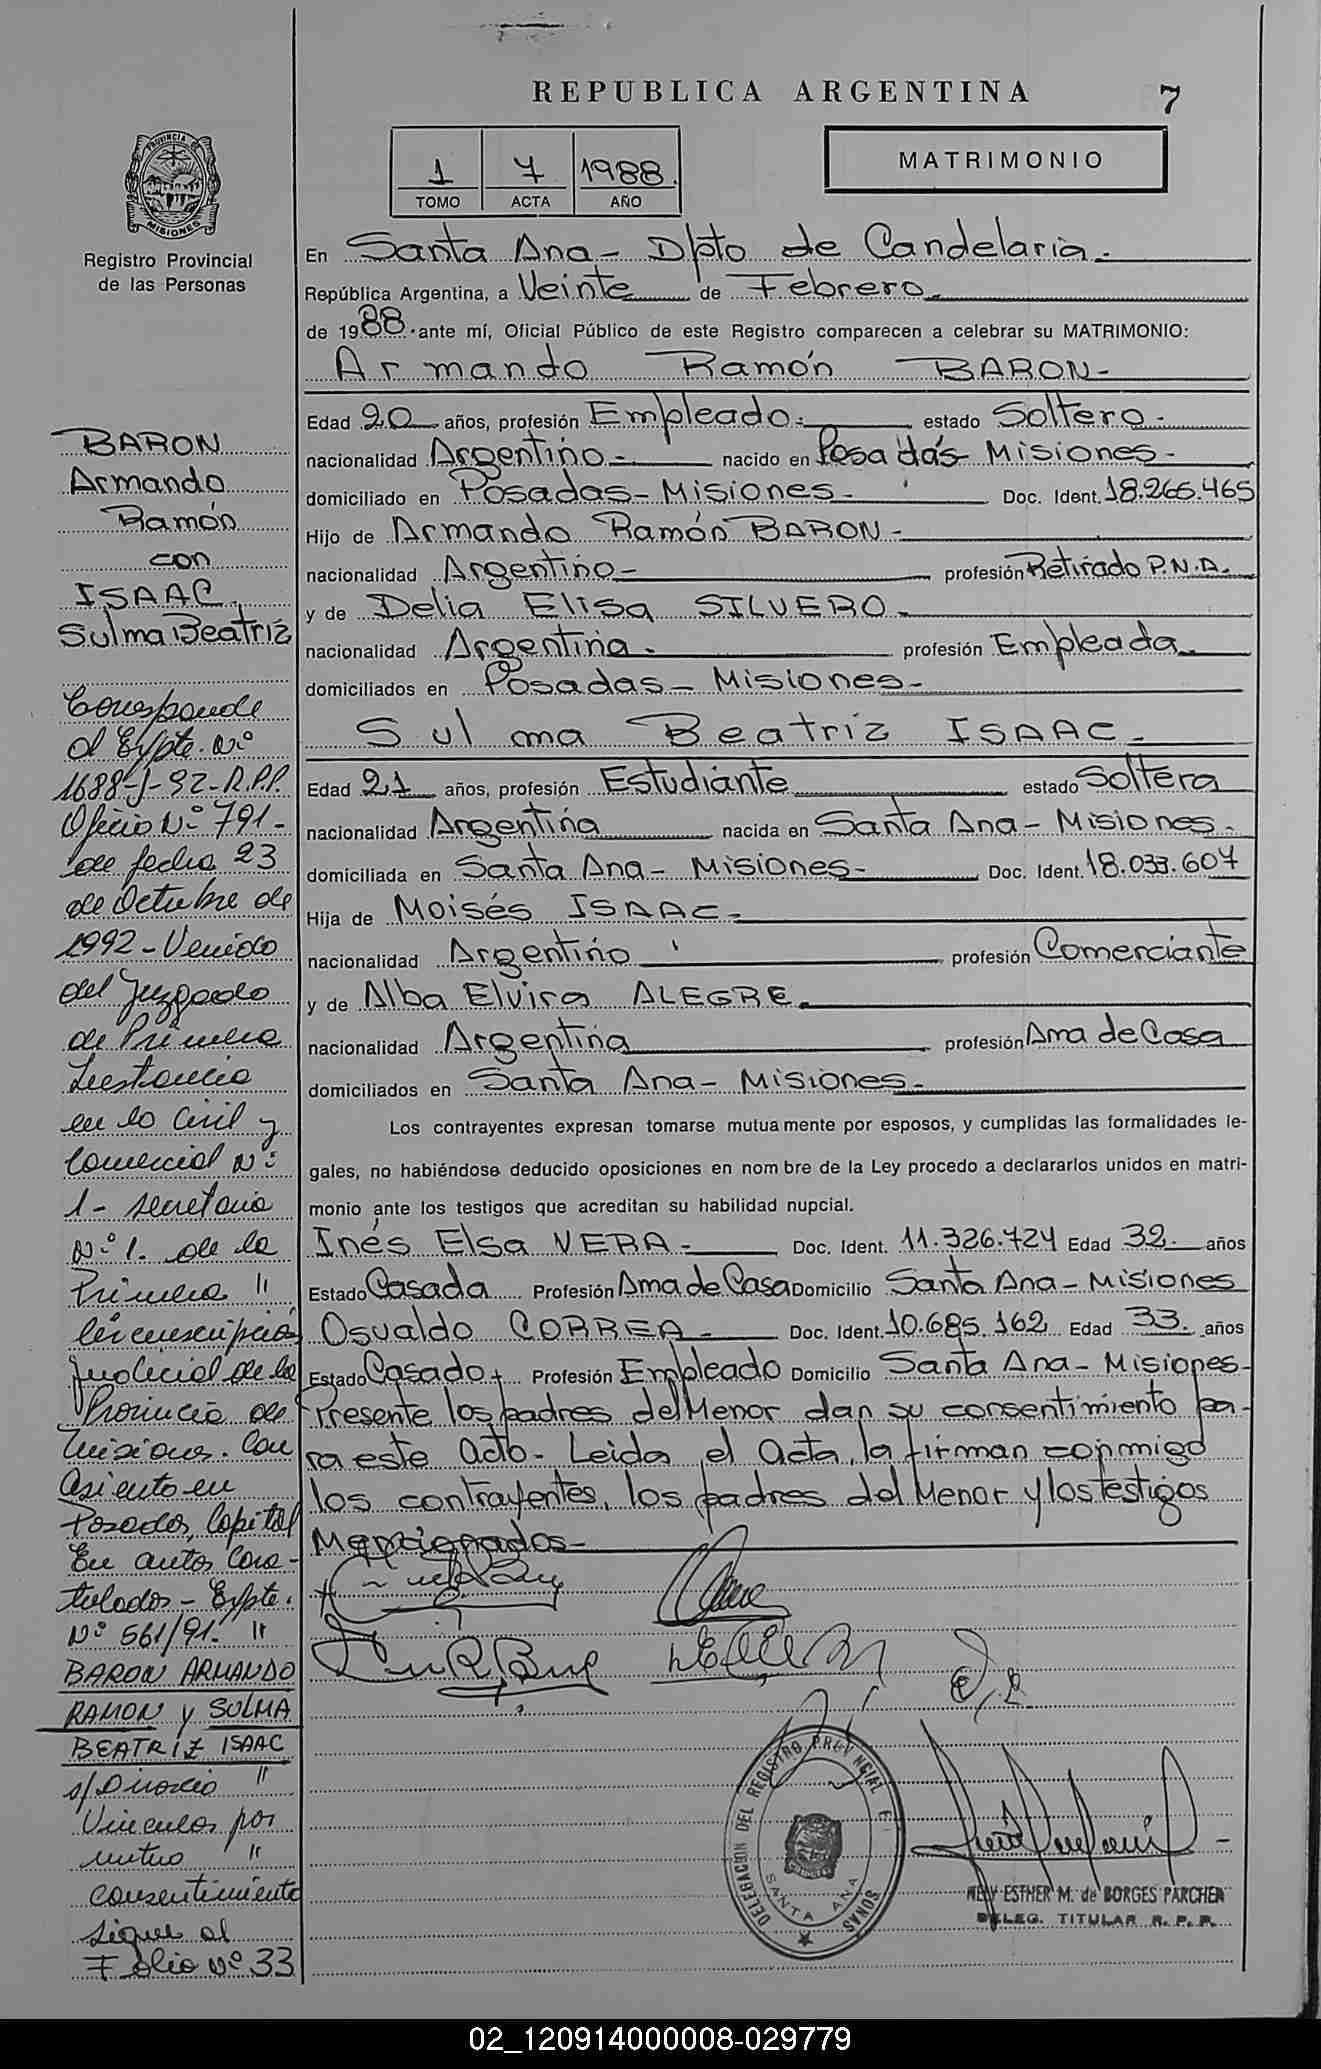 REPUBLICA ARGENTINA
7
1 7 1988.
TOMO ACTA AÑO
MATRIMONIO
PROVINCIA DE
MISIONES
Registro Provincial
de las Personas
En Santa Ana - Dpto de Candelaria.-
República Argentina, a Veinte de Febrero.
de 1988. ante mí, Oficial Público de este Registro comparecen a celebrar su MATRIMONIO:
Armando Ramón BARON-
Edad 20 años, profesión Empleado.- estado Soltero.-
nacionalidad Argentino.- nacido en Posadas- Misiones-
domiciliado en Posadas- Misiones- Doc. Ident. 18.265.465
Hijo de Armando Ramón BARON-
nacionalidad Argentino- profesión Retirado P.N.A.
y de Delia Elisa SILVERO-
nacionalidad Argentina.- profesión Empleada
domiciliados en Posadas- Misiones-
Sulma Beatriz ISAAC-
Edad 21 años, profesión Estudiante estado Soltera
nacionalidad Argentina nacida en Santa Ana- Misiones-
domiciliada en Santa Ana- Misiones- Doc. Ident. 18.033.607
Hija de Moisés ISAAC-
nacionalidad Argentino profesión Comerciante
y de Alba Elvira ALEGRE.
nacionalidad Argentina profesión Ama de Casa
domiciliados en Santa Ana- Misiones-
Los contrayentes expresan tomarse mutuamente por esposos, y cumplidas las formalidades le-
gales, no habiéndose deducido oposiciones en nombre de la Ley procedo a declararlos unidos en matri-
monio ante los testigos que acreditan su habilidad nupcial.
Inés Elsa VERA- Doc. Ident. 11.326.724 Edad 32 años
Estado Casada Profesión Ama de Casa Domicilio Santa Ana- Misiones
Osvaldo CORREA- Doc. Ident. 10.685.162 Edad 33. años
Estado Casado Profesión Empleado Domicilio Santa Ana- Misiones-
Presente los padres del Menor dan su consentimiento pa-
ra este acto- Leida el acta, la firman conmigo
los contrayentes, los padres del Menor y los testigos
Mencionados-
BARON
Armando
Ramón
con
ISAAC
Sulma Beatriz
Corresponde
al Expte. Nº
1688-J-92-R.P.P.
Oficio Nº 791-
de fecha 23
de Octubre de
1992- Venido
del Juzgado
de Primera
Instancia
en lo Civil y
Comercial Nº
1- secretaria
Nº 1. de la
Primera "
Circunscripción
Judicial de la
Provincia de
Misiones. Con
Asiento en
Posadas, Capital
En autos Cara-
tulados- Expte.
Nº 561/91. "
BARON ARMANDO
RAMON y SULMA
BEATRIZ ISAAC
s/Divorcio "
Vincular por
mutuo "
consentimiento
sigue al
Folio Nº 33
DELEGACION DEL REGISTRO PROVINCIAL DE PERSONAS
SANTA ANA
NELY ESTHER M. de BORGES PARCHEN
DELEG. TITULAR R. P. P.
02_120914000008-029779